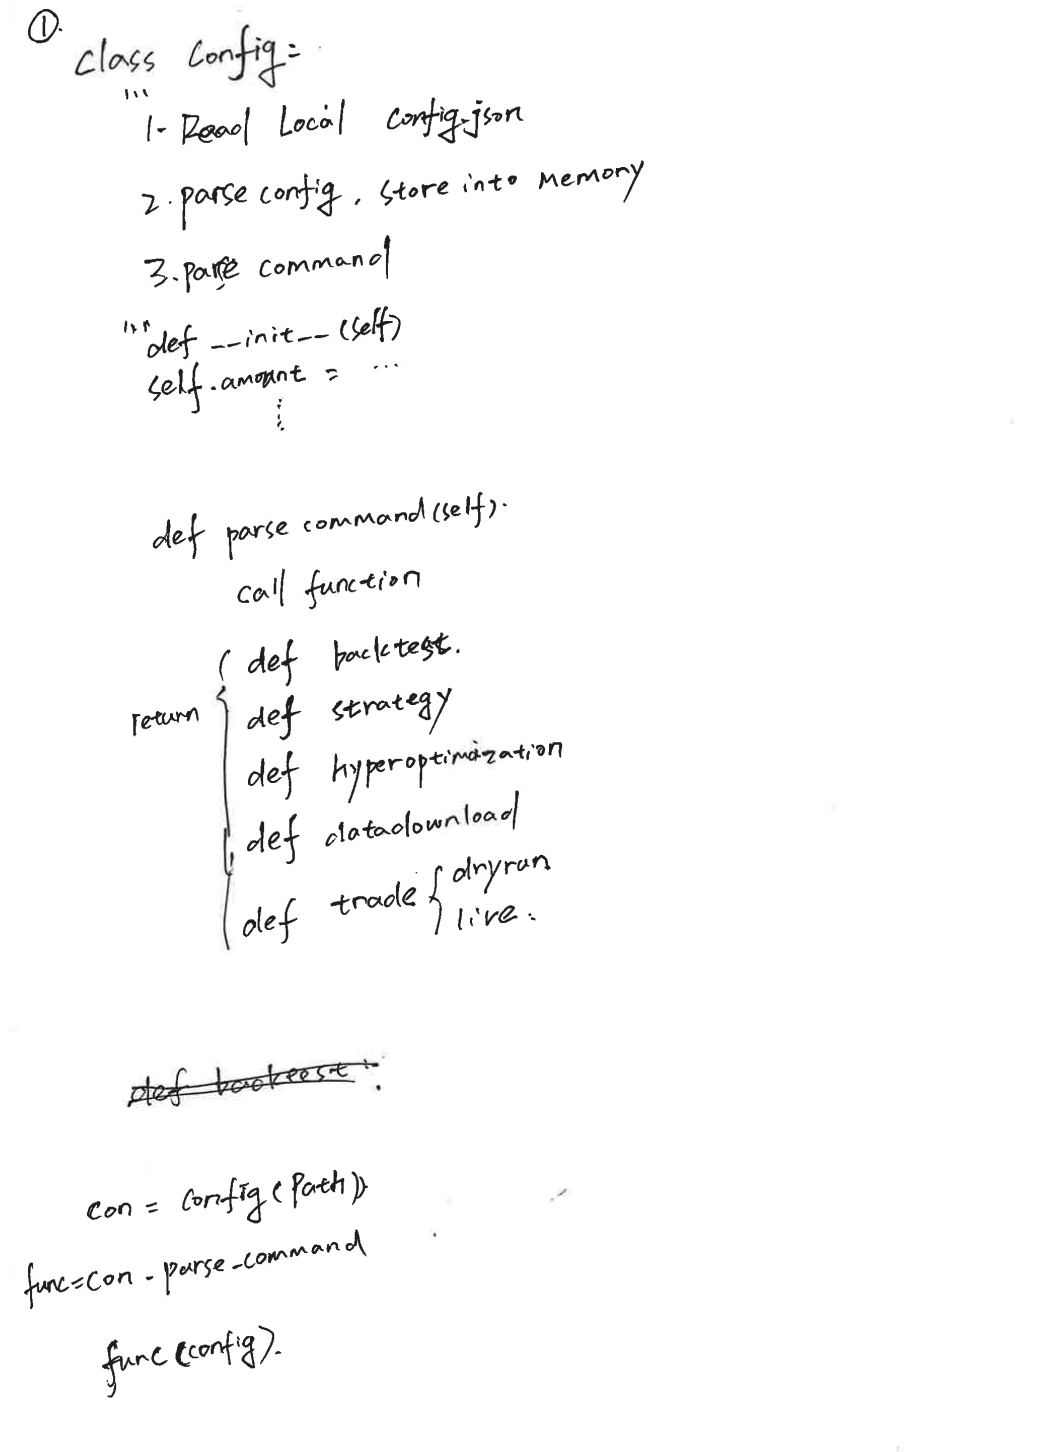 ①.
class Config:
'''
1. Read Local config.json
2. parse config, store into Memory
3. parse command
'''
def __init__ (self)
self.amount = ...
def parse command (self).
call function
return
def backtest.
def strategy
def hyperoptimization
def datadownload
def trade { dryrun
live.
con = Config (Path)
func=con.parse_command
func (config).